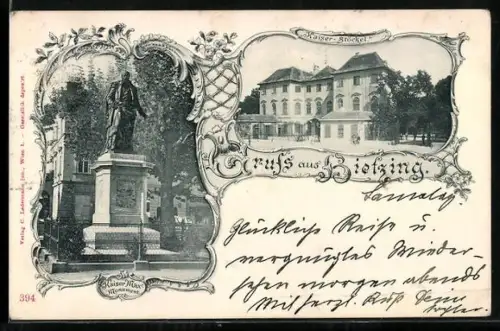 Kaiser-Stöckel.
Gruss aus Hietzing.
Kaiser Max
Monument.
Verlag C. Ledermann jun., Wien I. - Gesetzlich deponirt.
394
Samstag
Glückliche Reise u.
vergnügtes Wieder-
sehen morgen abends
Mit herzl. Kuss Deine